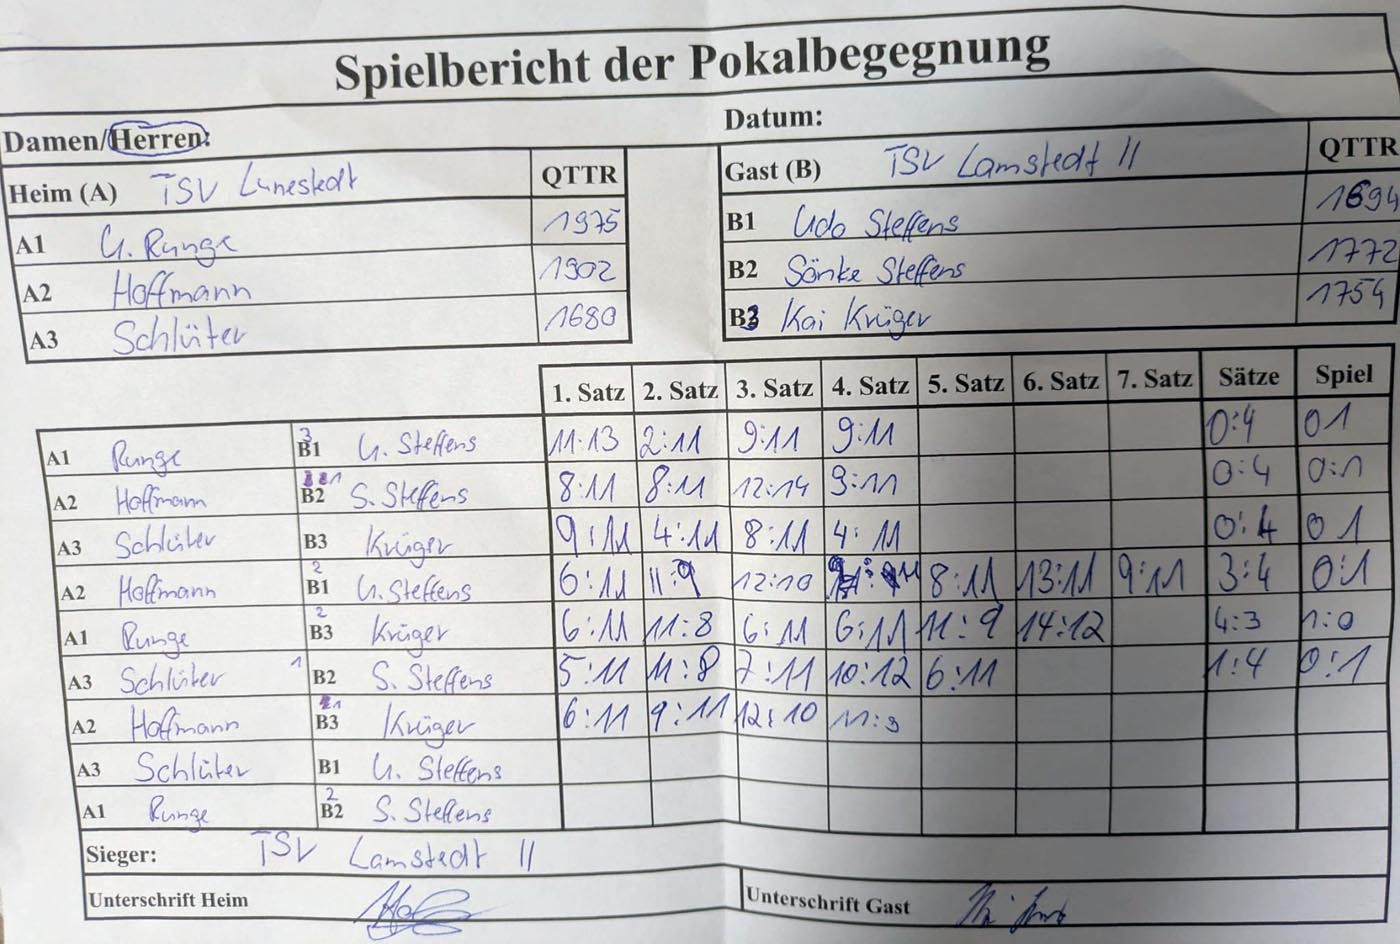 Spielbericht der Pokalbegegnung
Damen/Herren: Datum:
Heim (A) TSV Lunestedt QTTR Gast (B) TSV Lamstedt II QTTR
A1 U. Runge 1975 B1 Udo Steffens 1694
A2 Hoffmann 1902 B2 Sönke Steffens 1772
A3 Schlüter 1680 B3 Kai Krüger 1754
1. Satz 2. Satz 3. Satz 4. Satz 5. Satz 6. Satz 7. Satz Sätze Spiel
A1 Runge 3 B1 U. Steffens 11:13 2:11 9:11 9:11 0:4 0 1
A2 Hoffmann B2 S. Steffens 8:11 8:11 12:14 9:11 0:4 0:1
A3 Schlüter B3 Krüger 9:11 4:11 8:11 4:11 0:4 0 1
A2 Hoffmann 2 B1 U. Steffens 6:11 11:9 12:10 8:11 13:11 9:11 3:4 0:1
A1 Runge 2 B3 Krüger 6:11 11:8 6:11 6:11 11:9 14:12 4:3 1:0
A3 Schlüter 1 B2 S. Steffens 5:11 11:8 7:11 10:12 6:11 1:4 0:1
A2 Hoffmann B3 Krüger 6:11 9:11 12:10 11:9
A3 Schlüter B1 U. Steffens
A1 Runge 2 B2 S. Steffens
Sieger: TSV Lamstedt II
Unterschrift Heim Unterschrift Gast